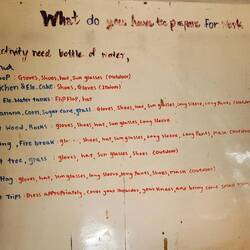 What do you have to prepare for work
ctivity need bottle of water,
: Gloves, Shoes, hat, Sun glasses (outdoor)
tchen & Ele.cake: Shoes, Gloves (Indoor)
Ele. Water tanks: Flip Flop, hat
anana, Corn, Sugar cane, grass: Gloves, Shoes, hat, Sun glasses, Long sleeve, Long Pants
Wood, Rocks: gloves, Shoes, hat, Sun glasses, Long sleeve
ng, Fire break: Shoes, hat, Sun glasses, Long sleeve, Long Pants, mask (outdoor)
tree, grass: gloves, hat, Sun glasses, Shoes (outdoor)
: gloves, hat, Sun glasses, long sleeve, long Pants, Shoes, mask (outdoor)
Trips: Dress appropriately, Cover your Shoulder, your Knees, and bring some